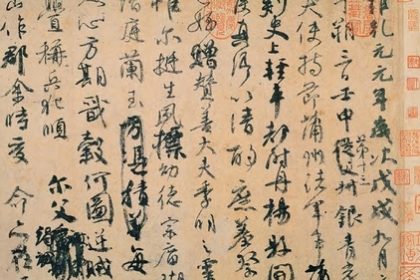 乾元元年歲次戊戌九月
午朔三日壬申第十三從父叔銀青
夫使持節蒲州諸軍事
刺史上輕車都尉丹楊縣開
侯真卿以清酌庶羞祭
姪贈贊善大夫季明之靈
惟爾挺生夙標幼德宗廟瑚
階庭蘭玉方憑積善每
人心方期戩穀何圖逆賊
釁稱兵犯順爾父竭誠
山作郡余時受命亦